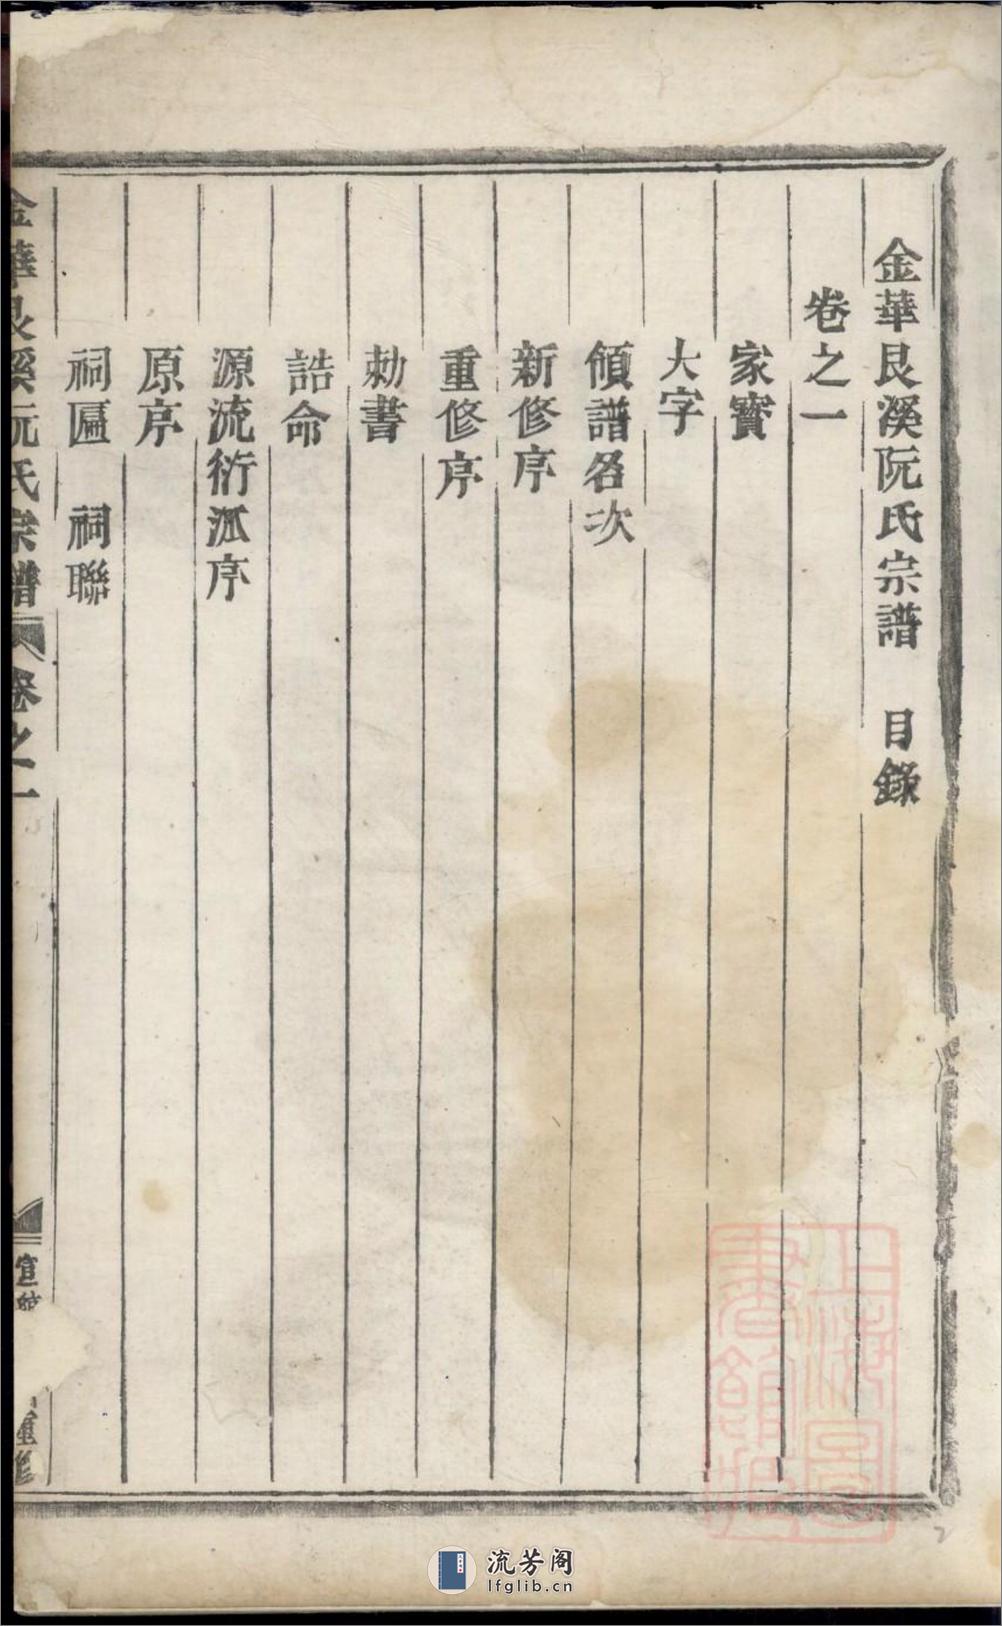 金華艮溪阮氏宗譜 目錄
卷之一
家寶
大字
領譜名次
新修序
重修序
勅書
誥命
源流衍派序
原序
祠匾 祠聯
金華艮溪阮氏宗譜 卷之一
宣統
重修
上海圖
書館藏
2
流芳阁
lfglib.cn